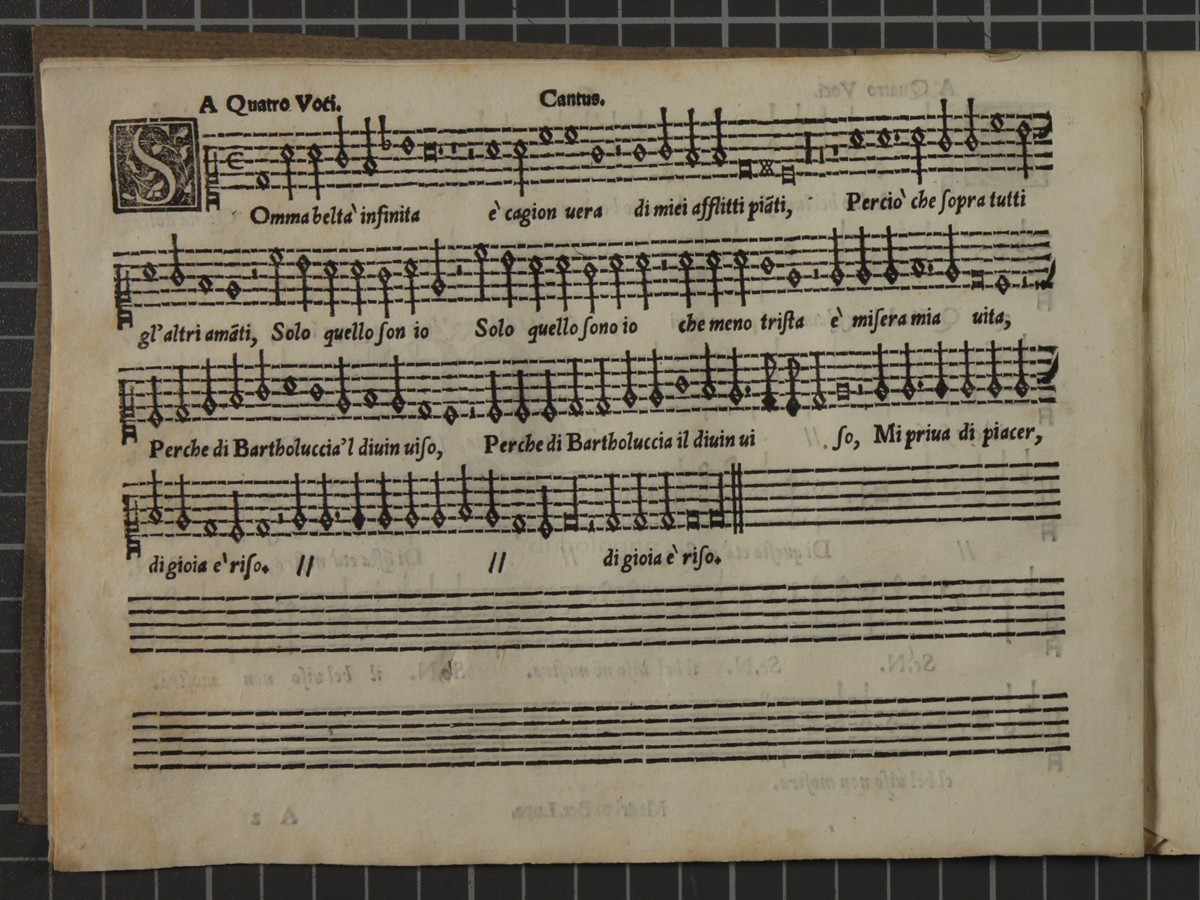 A Quatro Voci. Cantus.
SOmma belta` infinita è cagion uera di miei afflitti piãti, Percio` che sopra tutti
gl'altri amãti, Solo quello son io Solo quello sono io che meno trista è misera mia uita,
Perche di Bartholuccia'l diuin uiso, Perche di Bartholuccia il diuin ui // so, Mi priua di piacer,
di gioia e` riso. // // di gioia è riso.